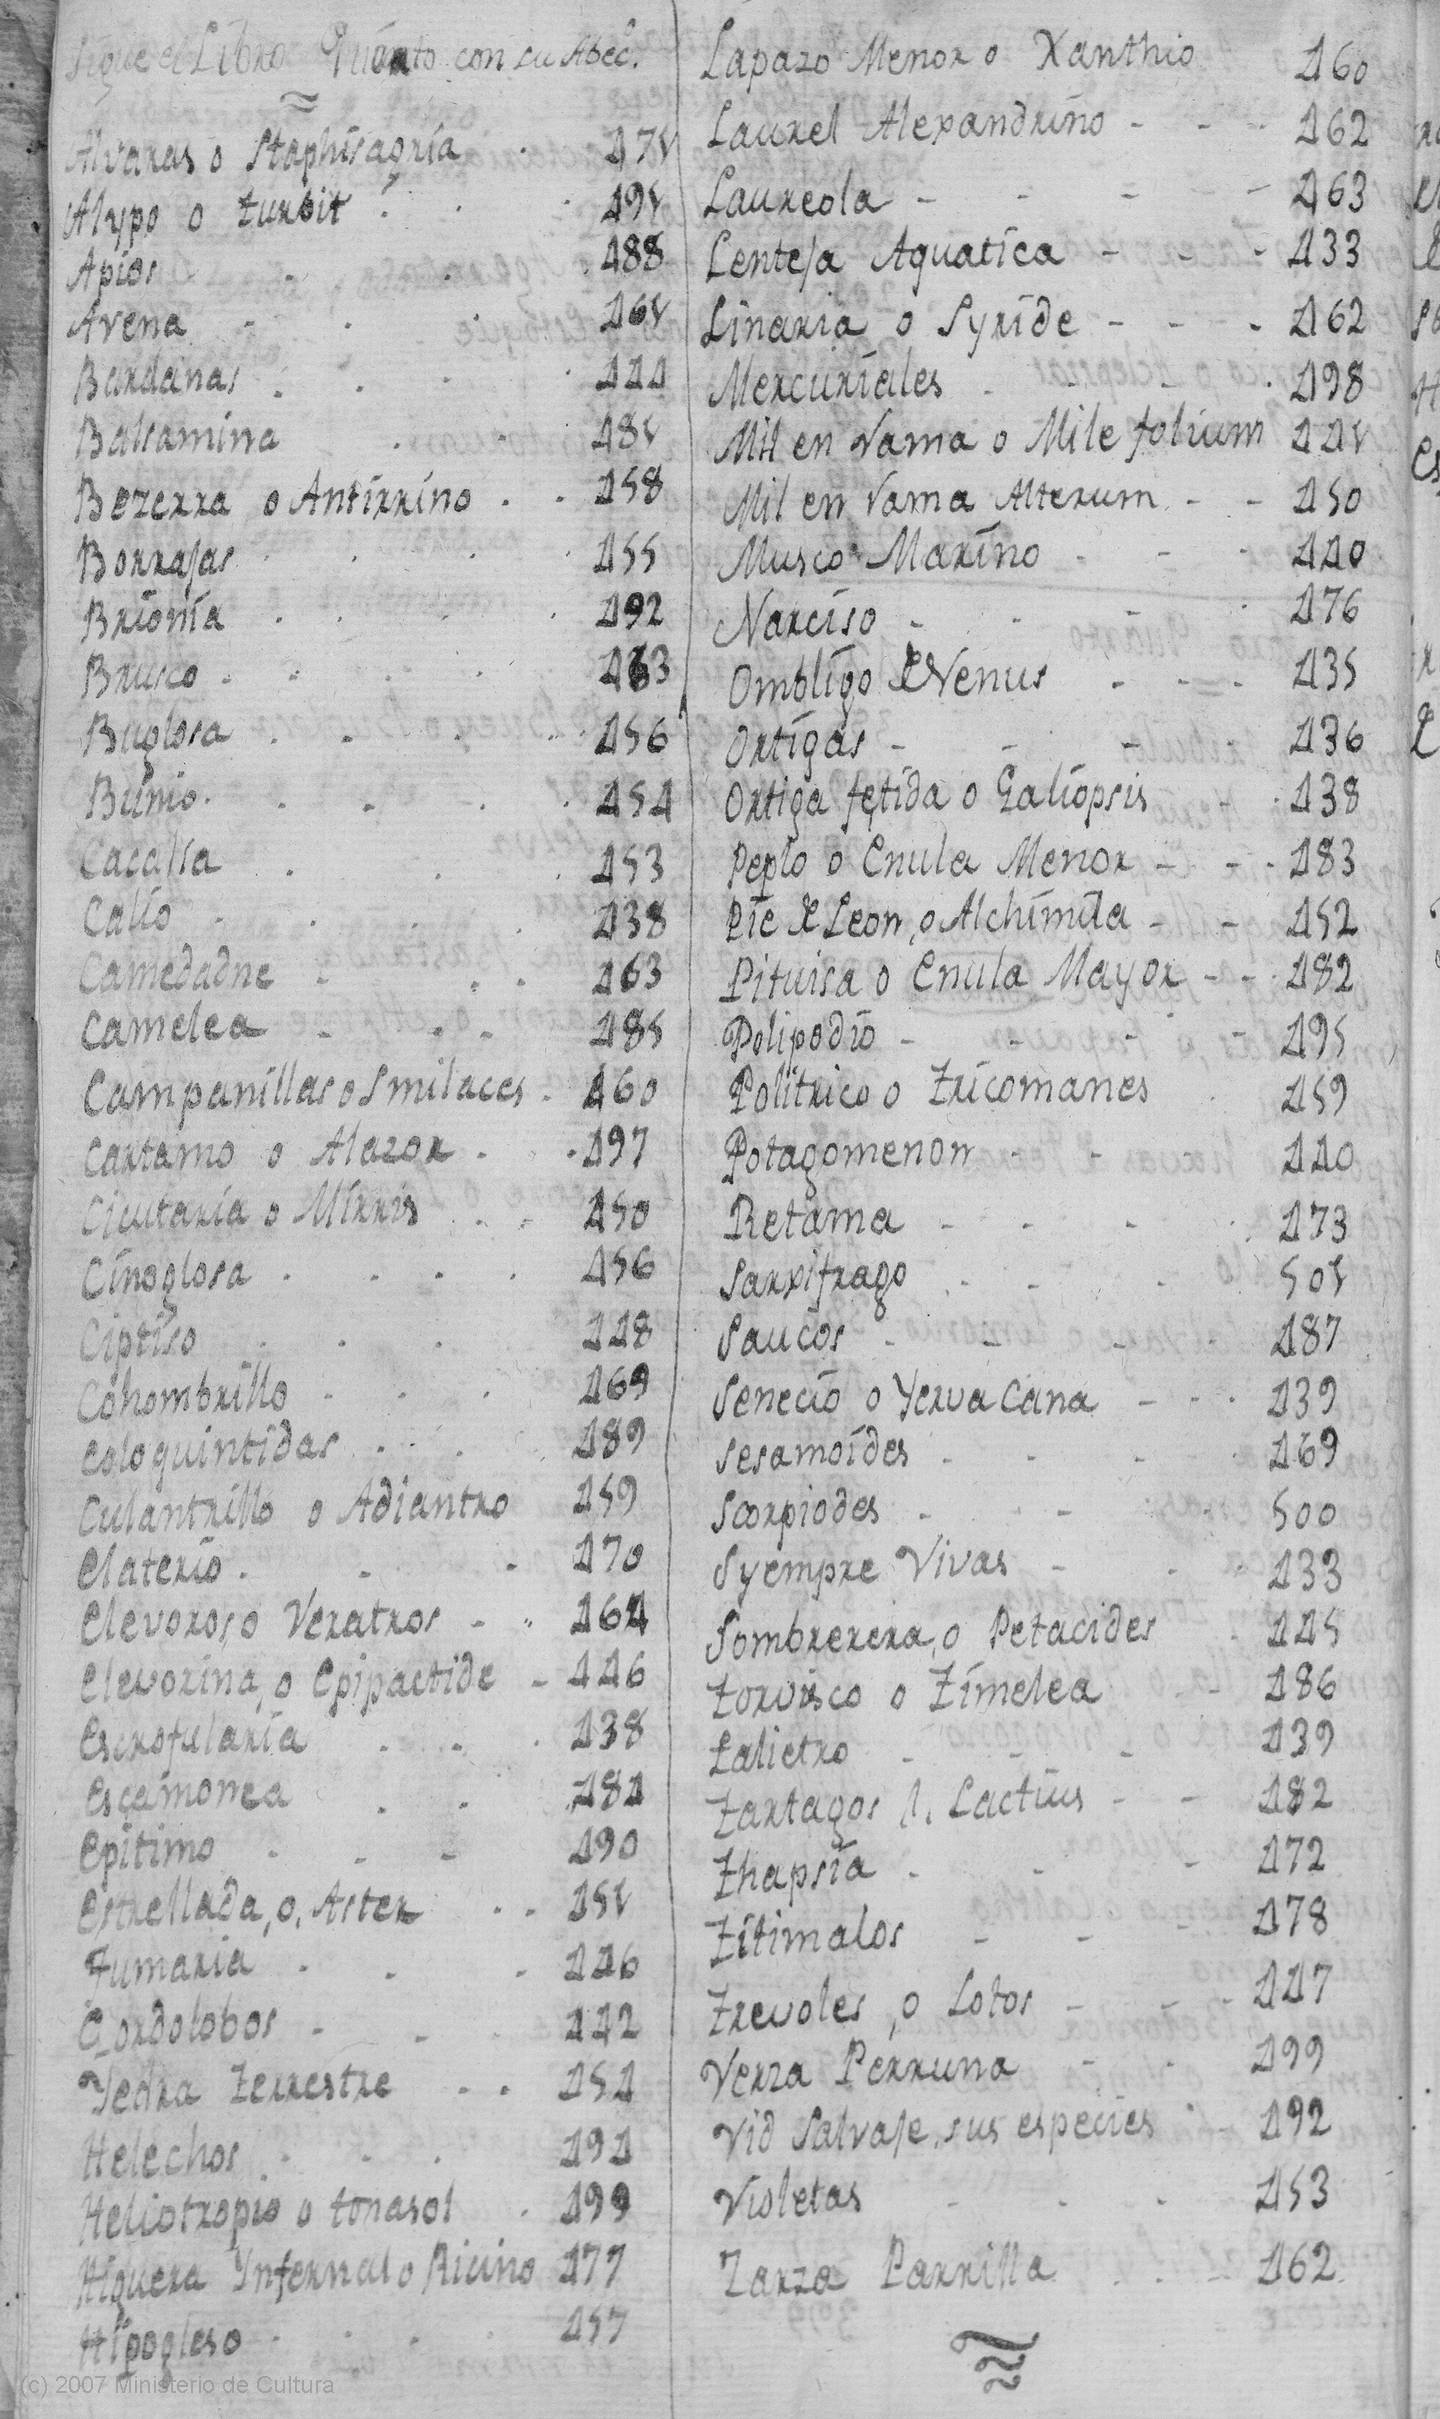 Sigue el Libro Quarto con su Abec.
Alvaras o Staphisagria 471
Alypo o turbit 491
Apios 488
Avena 461
Bardanas 444
Balsamina 481
Bezerra o Antirrino 458
Borrajas 455
Brionia 492
Brusco 463
Buglosa 456
Bunio 454
Cacalia 453
Calio 438
Camedadne 463
Camelea 485
Campanillas o Smilaces 460
Cartamo o Alazor 497
Cicutaria o Mirris 450
Cinoglosa 456
Ciptiso 448
Cohombrillo 469
Coloquintidas 489
Culantrillo o Adiantro 459
Elaterio 470
Elevoros, o Veratros 464
Elevorina, o Epipactide 446
Escrofularia 438
Escamonea 484
Epitimo 490
Estrellada, o, Aster 451
Fumaria 446
Gordolobos 442
Yedra Terrestre 454
Helechos 494
Heliotropio o tonasol 499
Higuera Infernal o Ricino 477
Hipogleso 457
Lapazo Menor o Xanthio 460
Laurel Alexandrino 462
Laureola 463
Lenteja Aquatica 433
Linaria o Syride 462
Mercuriales 498
Mil en rama o Mile folium 441
Mil en rama Alterum 450
Musco Marino 440
Narciso 476
Ombligo de Venus 435
Ortigas 436
Ortiga fetida o Galiopsis 438
Peplo o Enula Menor 483
Pie de Leon, o Alchimila 452
Pituisa o Enula Mayor 482
Polipodio 495
Politrico o Tricomanes 459
Potagomenon 440
Retama 473
Sarxifrago 501
Saucos 487
Senecio o Yerva Cana 439
Sesamoides 469
Scorpiodes 500
Syempre Vivas 433
Sombrerera, o Petacides 445
Torvisco o Timelea 486
Talietro 439
Tartagos l. Lactius 482
Thapsia 472
Titimalos 478
Trevoles, o Lotos 447
Verza Perruna 499
Vid Salvaje, sus especies 492
Violetas 453
Zarza Parrilla 462
(c) 2007 Ministerio de Cultura